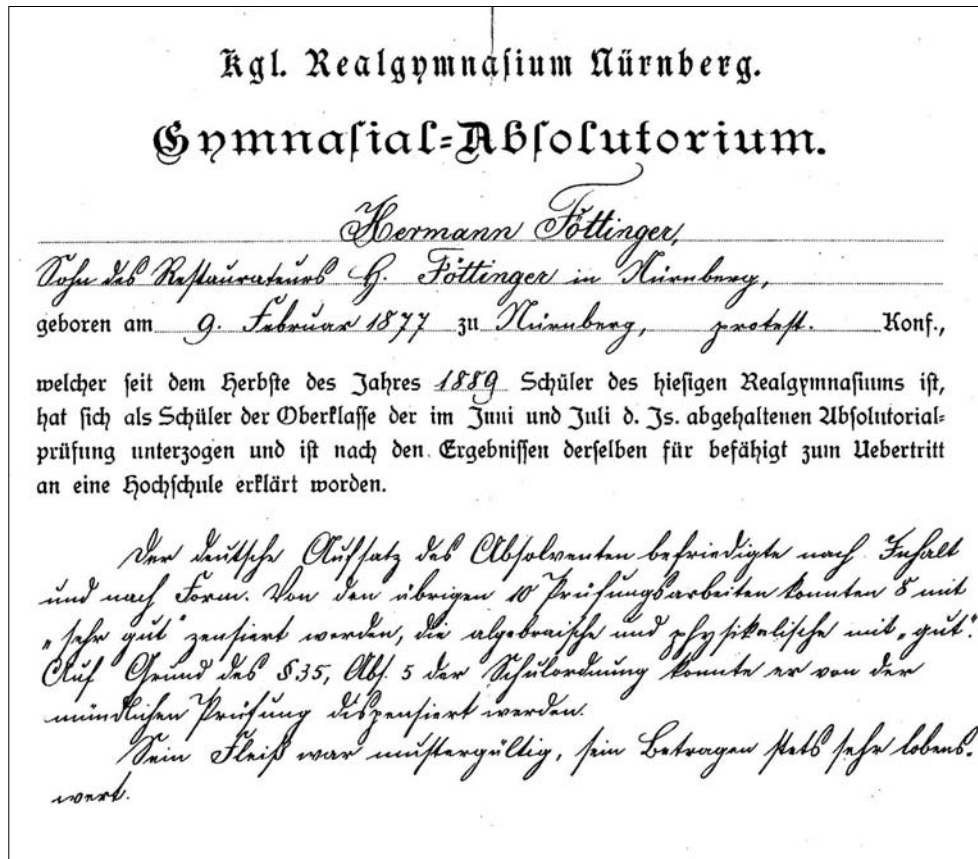 Kgl. Realgymnasium Nürnberg.
Gymnasial-Absolutorium.
Hermann Föttinger,
Sohn des Restaurateurs H. Föttinger in Nürnberg,
geboren am 9. Februar 1877 zu Nürnberg, protest. Konf.,
welcher seit dem Herbste des Jahres 1889 Schüler des hiesigen Realgymnasiums ist,
hat sich als Schüler der Oberklasse der im Juni und Juli d. Js. abgehaltenen Absolutorial-
prüfung unterzogen und ist nach den Ergebnissen derselben für befähigt zum Uebertritt
an eine Hochschule erklärt worden.
Der deutsche Aufsatz des Absolventen befriedigte nach Inhalt
und nach Form. Von den übrigen 10 Prüfungsarbeiten konnten 8 mit
„sehr gut" zensiert werden, die algebraische und physikalische mit „gut."
Auf Grund des § 35, Abs. 5 der Schulordnung konnte er von der
mündlichen Prüfung dispensiert werden.
Sein Fleiß war mustergültig, sein Betragen stets sehr lobens-
wert.